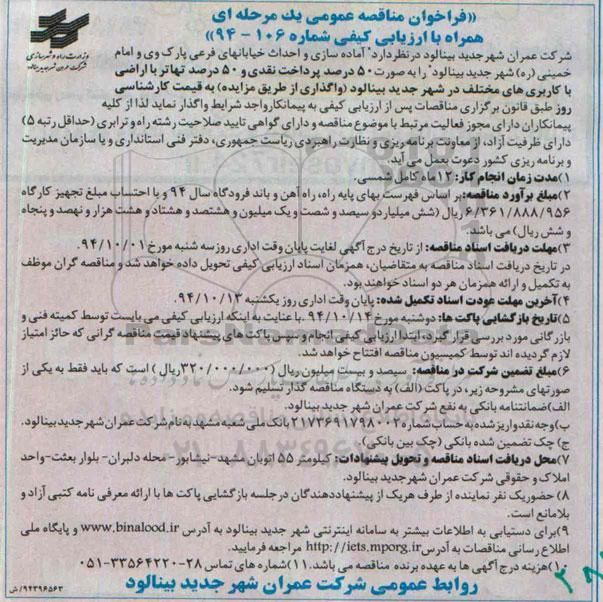 «فراخوان مناقصه عمومی یك مرحله ای
همراه با ارزیابی کیفی شماره ۱۰۶ - ۹۴»
وزارت راه و شهرسازی
شرکت عمران شهر جدید بینالود
شرکت عمران شهر جدید بینالود در نظر دارد" آماده سازی و احداث خیابانهای فرعی پارک وی و امام
خمینی (ره) شهر جدید بینالود" را به صورت ۵۰ درصد پرداخت نقدی و ۵۰ درصد تهاتر با اراضی
با کاربری های مختلف در شهر جدید بینالود (واگذاری از طریق مزایده) به قیمت کارشناسی
روز طبق قانون برگزاری مناقصات پس از ارزیابی کیفی به پیمانکار واجد شرایط واگذار نماید لذا از کلیه
پیمانکاران دارای مجوز فعالیت مرتبط با موضوع مناقصه و دارای گواهی تایید صلاحیت رشته راه و ترابری (حداقل رتبه ۵)
دارای ظرفیت آزاد، از معاونت برنامه ریزی و نظارت راهبردی ریاست جمهوری، دفتر فنی استانداری و یا سازمان مدیریت
و برنامه ریزی کشور دعوت بعمل می آید.
۱)مدت زمان انجام کار: ۱۲ ماه کامل شمسی.
۲)مبلغ برآورد مناقصه: بر اساس فهرست بهای پایه راه، راه آهن و باند فرودگاه سال ۹۴ و با احتساب مبلغ تجهیز کارگاه
۶/۳۶۱/۸۸۸/۹۵۶ ریال (شش میلیارد و سیصد و شصت و یک میلیون و هشتصد و هشتاد و هشت هزار و نهصد و پنجاه
و شش ریال) می باشد.
۳)مهلت دریافت اسناد مناقصه: از تاریخ درج آگهی لغایت پایان وقت اداری روز سه شنبه مورخ ۹۴/۱۰/۰۱.
در تاریخ دریافت اسناد مناقصه به متقاضیان، همزمان اسناد ارزیابی کیفی تحویل داده خواهد شد و مناقصه گران موظف
به تکمیل و ارائه همزمان هر دو اسناد خواهند بود.
۴)آخرین مهلت عودت اسناد تکمیل شده: پایان وقت اداری روز یکشنبه ۹۴/۱۰/۱۳.
۵)تاریخ بازگشایی پاکت ها: دوشنبه مورخ ۹۴/۱۰/۱۴ .با عنایت به اینکه ارزیابی کیفی می بایست توسط کمیته فنی و
بازرگانی مورد بررسی قرار گیرد، ابتدا ارزیابی کیفی انجام و سپس پاکت های پیشنهاد قیمت مناقصه گرانی که حائز امتیاز
لازم گردیده اند توسط کمیسیون مناقصه افتتاح خواهد شد.
۶)مبلغ تضمین شرکت در مناقصه: سیصد و بیست میلیون ریال (۳۲۰/۰۰۰/۰۰۰ریال) است که باید فقط به یکی از
صورتهای مشروحه زیر، در پاکت (الف) به دستگاه مناقصه گذار تسلیم شود.
الف)ضمانتنامه بانکی به نفع شرکت عمران شهر جدید بینالود.
ب)وجه نقد واریز شده به حساب شماره ۲۱۷۳۶۹۱۷۹۸۰۰۲ بانک ملی شعبه مشهد به نام شرکت عمران شهر جدید بینالود.
ج) چک تضمین شده بانکی (چک بین بانکی)
۷)محل دریافت اسناد مناقصه و تحویل پیشنهادات: کیلومتر ۵۵ اتوبان مشهد-نیشابور- محله دلبران- بلوار بعثت-واحد
املاک و حقوقی شرکت عمران شهر جدید بینالود.
۸) حضور یک نفر نماینده از طرف هریک از پیشنهاددهندگان در جلسه بازگشایی پاکت ها با ارائه معرفی نامه کتبی آزاد و
بلامانع است.
۹)برای دستیابی به اطلاعات بیشتر به سامانه اینترنتی شهر جدید بینالود به آدرس www.binalood.ir و پایگاه ملی
اطلاع رسانی مناقصات به آدرس http://iets.mporg.ir مراجعه فرمایید.
۱۰)هزینه درج آگهی ها به عهده برنده مناقصه می باشد. ۱۱)شماره های تماس ۲۸-۳۳۵۶۴۲۲۰-۰۵۱
روابط عمومی شرکت عمران شهر جدید بینالود
۹۴۳۹۶۵۶۳/ش
ParsNamadData
۰۲۱-۸۸۳۴۹۶۷۰